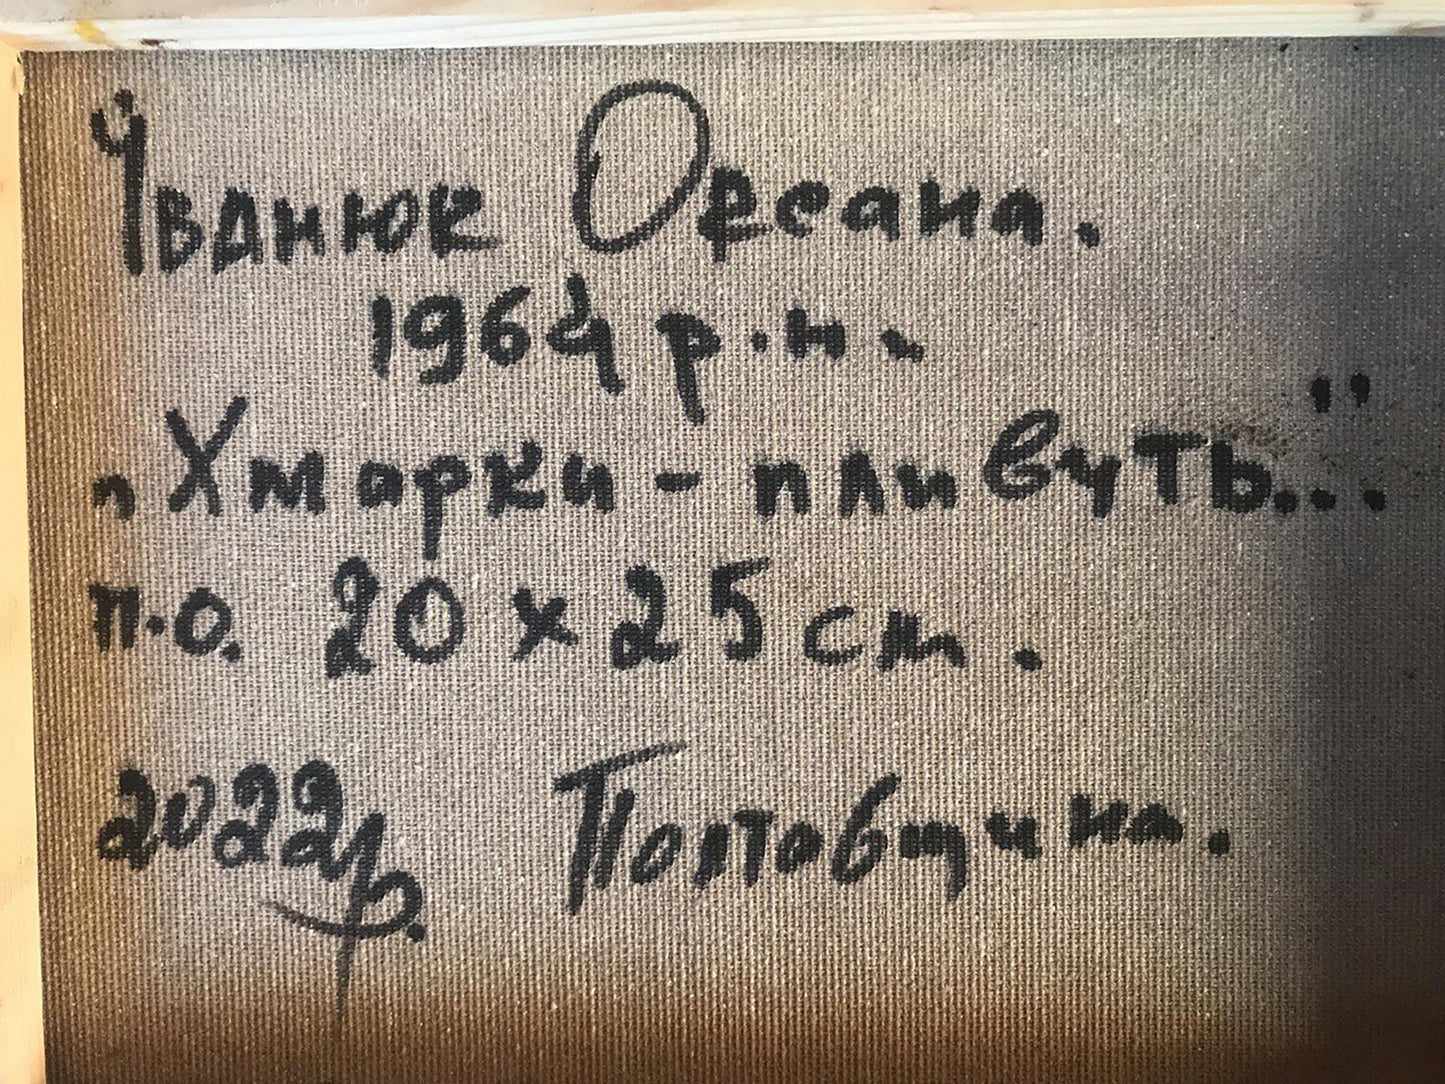 Іванюк Оксана.
1964 р.н.
„Хмарки - пливуть..."
п.о. 20 x 25 см.
2022р. Полтавщина.